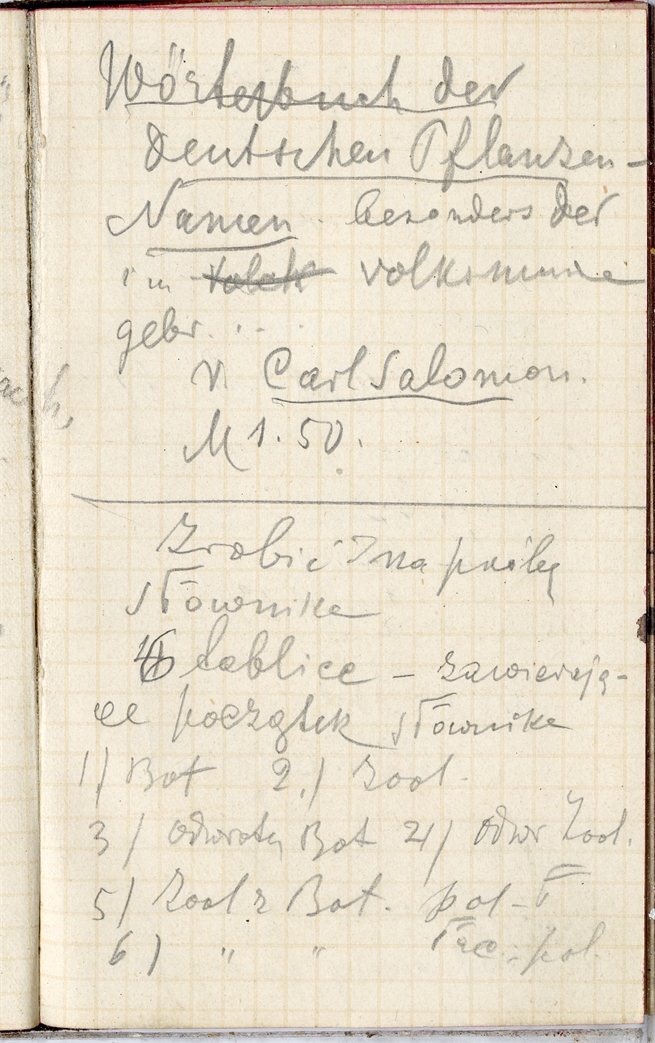 Wörterbuch der
deutschen Pflanzen-
Namen. besonders der
im Volksmunde
gebr. . . .
v. Carl Salomon.
M 1.50.
Zrobić na próbę
słownika
6 tablice – zawierają-
ce początek słownika
1) Bot 2.) Zool.
3) odwrotn Bot 4) odwr Zool.
5) Zool z Bot. pol-ł
6) " " łac-pol.